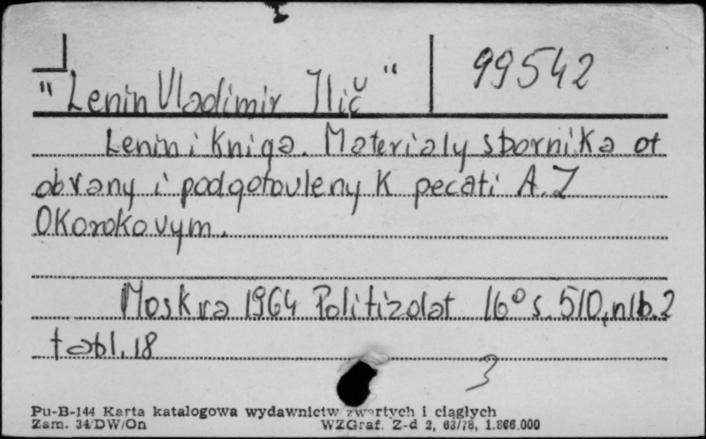 "Lenin Vladimir Ilič" 99542
Lenin i Kniga. Materialy sbornika ot
obrany i podgotovleny K pečati A.Z
Okorokovym.
Moskva 1964 Politizdat 16° s. 510, nlb. 2
tabl. 18
3
Pu-B-144 Karta katalogowa wydawnictw zwartych i ciągłych
Zam. 34/DW/On WZGraf. Z-d 2, 63/78, 1.866.000